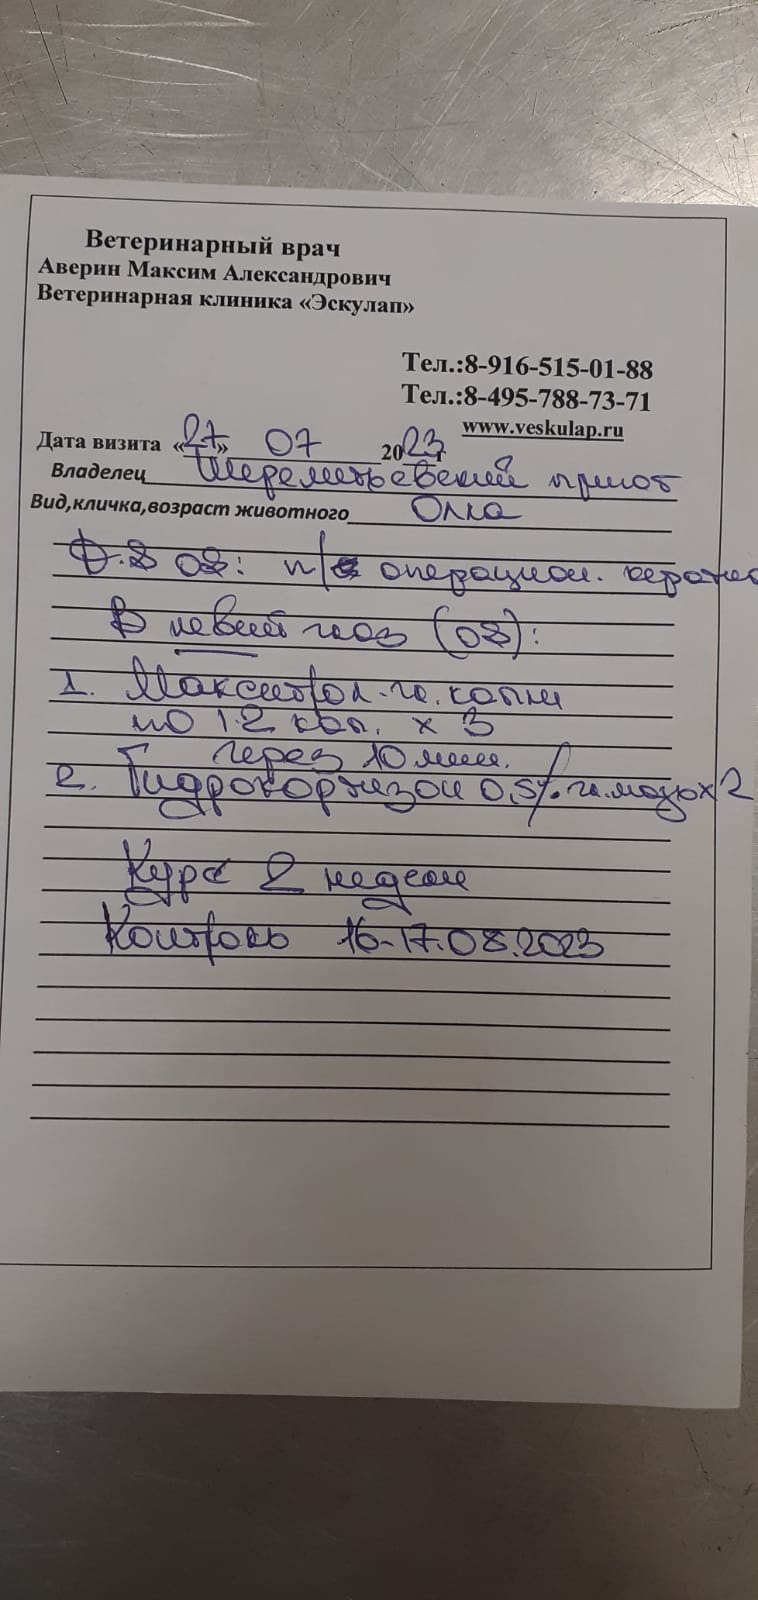 Ветеринарный врач
Аверин Максим Александрович
Ветеринарная клиника «Эскулап»
Тел.:8-916-515-01-88
Тел.:8-495-788-73-71
www.veskulap.ru
Дата визита «27» 07 2023 г
Владелец Шереметьевский приют
Вид,кличка,возраст животного Олка
OS: п/ операцион.
В левый глаз (OS):
1. Макситрол гл. капли
по 1-2 кап. х 3
через 10 мин.
2. Гидрокортизон 0,5% гл. мазь х 2
Курс 2 недели
Контроль 16-17.08.2023